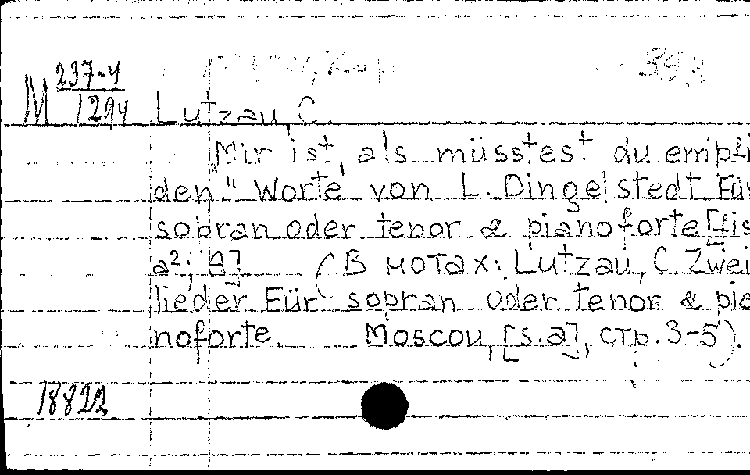 393
М 237-4/1294 Lutzau, C.
"Mir ist, als müsstest du empfi
den" Worte von L. Dingelstedt Für
sopran oder tenor & pianoforte [fis
a²; A] (В нотах: Lutzau, C. Zwei
lieder Für sopran oder tenor & pia
noforte. Moscou, [s.a], стр. 3-5).
18822